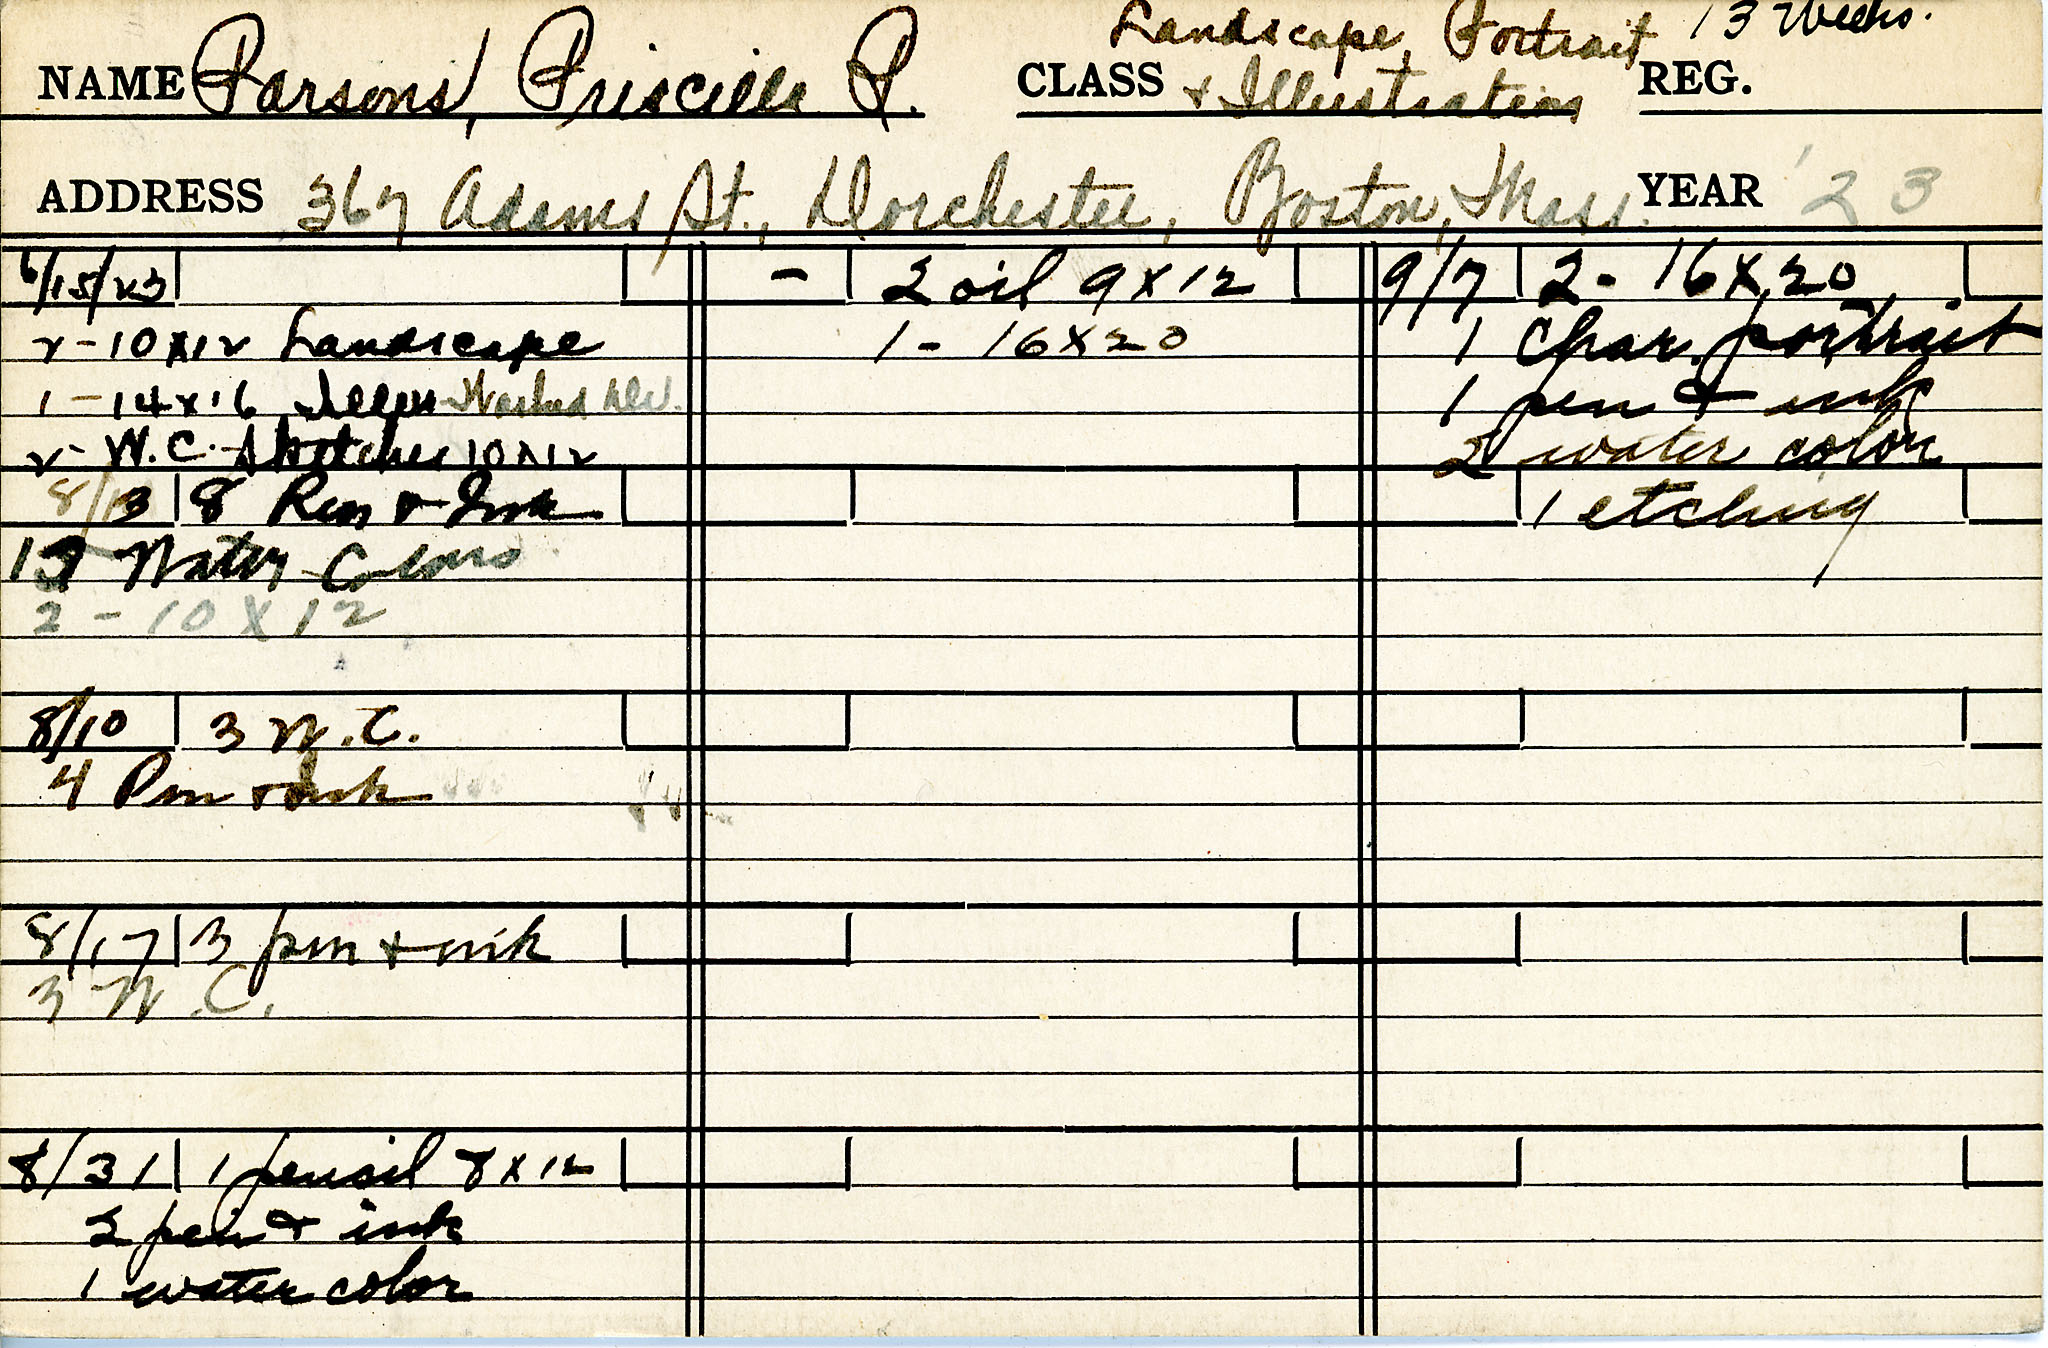 Landscape, Portrait 13 Weeks.
NAME Parsons, Priscilla P. CLASS & Illustration REG.
ADDRESS 367 Adams St., Dorchester, Boston, Mass. YEAR '23
6/15/23
2 - 10 x 12 Landscape
1 - 14 x 16 Illus
2 - W.C. Sketches 10 x 12
8/3 8 Pen & Ink
Water Colors
2 - 10 x 12
8/10 3 W.C.
4 Pen & Ink
8/17 3 pen & ink
3 W.C.
8/31 1 pencil 8 x 12
2 pen & ink
1 water color
- 2 oil 9 x 12
1 - 16 x 20
9/7 2 - 16 x 20
1 Char. portrait
1 pen & ink
2 water color
1 etching